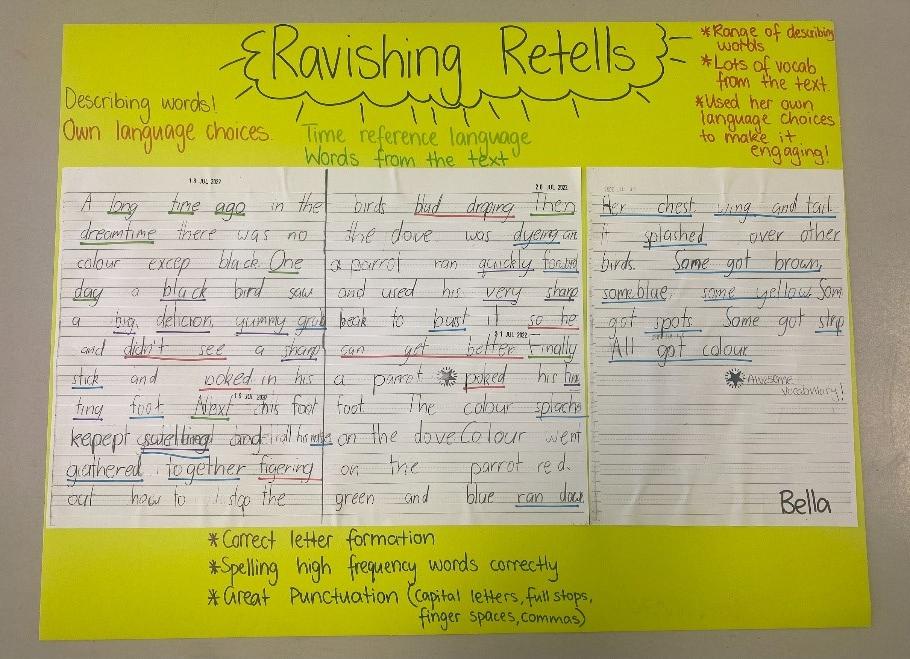 Ravishing Retells
Describing words!
Own language choices.
Time reference language
Words from the text
*Range of describing
words
*Lots of vocab
from the text.
*Used her own
language choices
to make it
engaging!
A long time ago in the
dreamtime there was no
colour excep black. One
day a black bird saw
a big, delicion, yummy grub
and didn't see a sharp
stick and poked in his
foot Next his foot
kepept swelling and
gathered together figering
out how to stop the
20 JUL 2022
birds blud droping Then
the dove was dyeing an
a parrot ran quickly forwad
and used his very sharp
beak to bust it so he
21 JUL 2022
can get better Finally
a parrot poked his
foot The colour splachs
on the dove Colour went
on the parrot red.
green and blue ran down
Her chest wing and tail
it splashed over other
birds. Some got brown,
some blue, some yellow. Som
got spots Some got strip
All got colour
Awesome
vocabulary!
Bella
*Correct letter formation
*Spelling high frequency words correctly
*Great Punctuation (Capital letters, full stops,
finger spaces, commas)